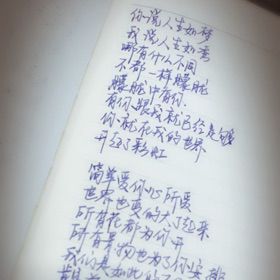 你说人生如梦
我说人生如秀
那有什么不同
不都一样朦胧
朦胧中有你
有你跟我就已经足够
你就在我的世界
升起了彩虹
简单爱你心所爱
世界也变的大了起来
所有花都为你开
所有景物也为了你安排
我们是如此的